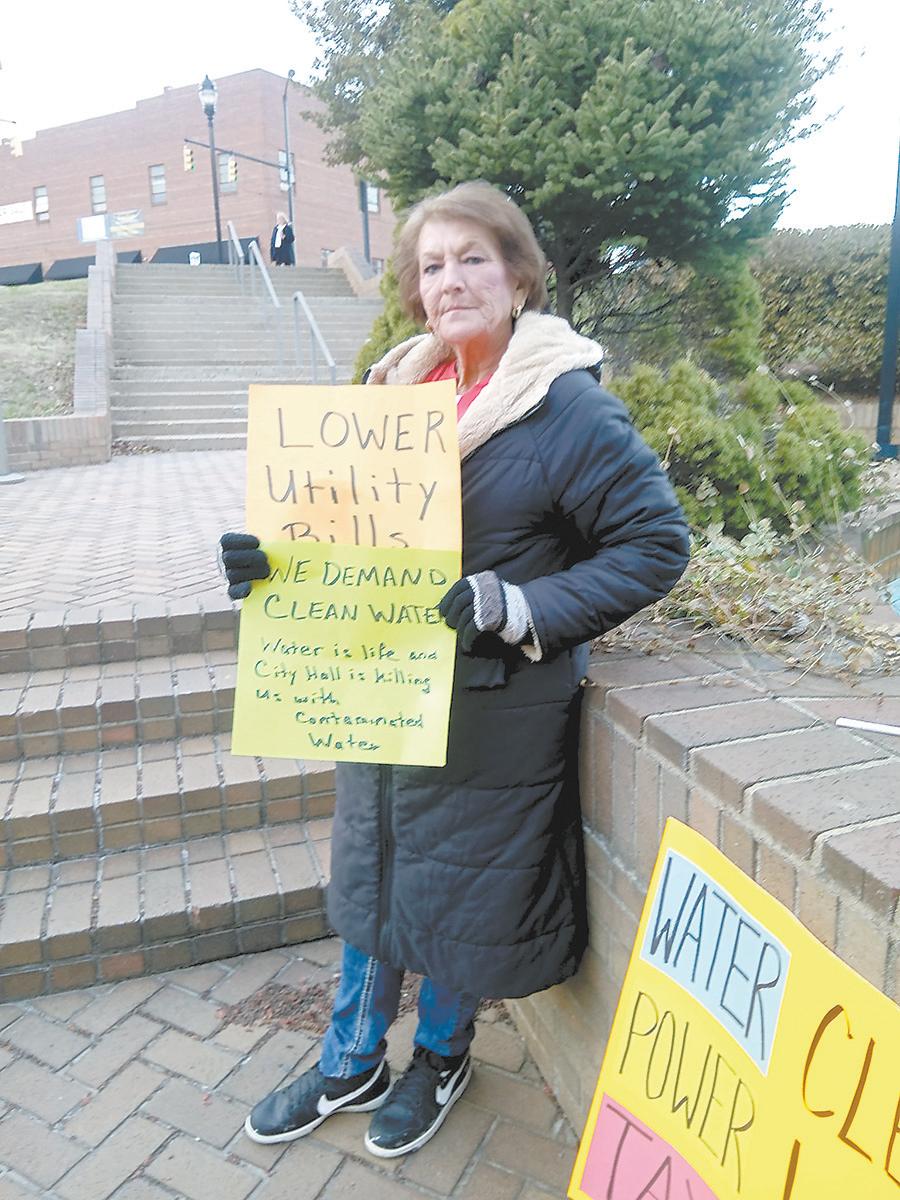 LOWER
Utility
Bills
WE DEMAND
CLEAN WATE
Water is life and
City Hall is killing
us with
Contaminated
Water
WATER
POWER
TA
CLE